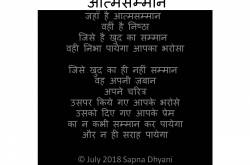 आत्मसम्मान
जहाँ है आत्मसम्मान
वहीं है निष्ठा
जिसे है खुद का सम्मान
वही निभा पायेगा आपका भरोसा
जिसे खुद का ही नहीं सम्मान
वह अपनी ज़बान
अपने चरित्र
उसपर किये गए आपके भरोसे
उसको दिए गए आपके प्रेम
का न कभी सम्मान कर पायेगा
और न ही सराह पायेगा
© July 2018 Sapna Dhyani